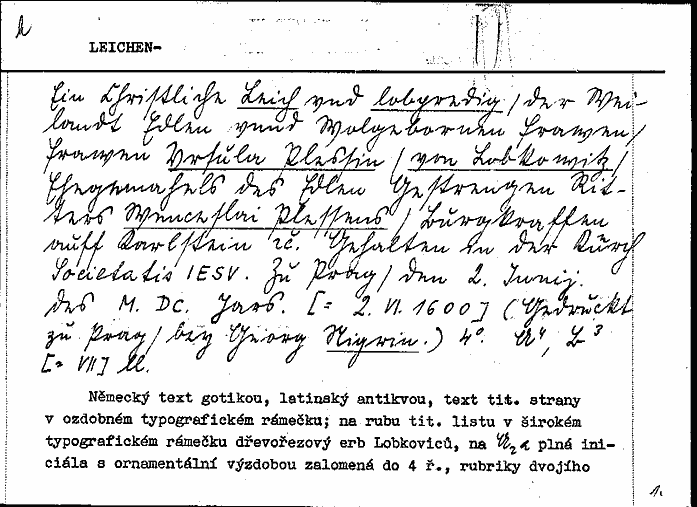 LEICHEN-
Ein Christliche Leich vnd lobpredig / der Wei-
landt Edlen vnnd Wolgebornen Frawen /
Frawen Vrsula Plessin / von Lobkowitz /
Ehegemahels des Edlen Gestrengen Rit-
ters Wenceslai Plessens / Burgkraffen
auff Karlstein ꝛc. Gehalten in der Kürch
Societatis IESV. Zu Prag / den 2. Junij.
des M. DC. Jars. [= 2. VI. 1600] (Gedruckt
zu Prag / bey Georg Nigrin.) 4°. A⁴, B³
[= VII] ll.
Německý text gotikou, latinský antikvou, text tit. strany
v ozdobném typografickém rámečku; na rubu tit. listu v širokém
typografickém rámečku dřevořezový erb Lobkoviců, na A₂a plná ini-
ciála s ornamentální výzdobou zalomená do 4 ř., rubriky dvojího
1.